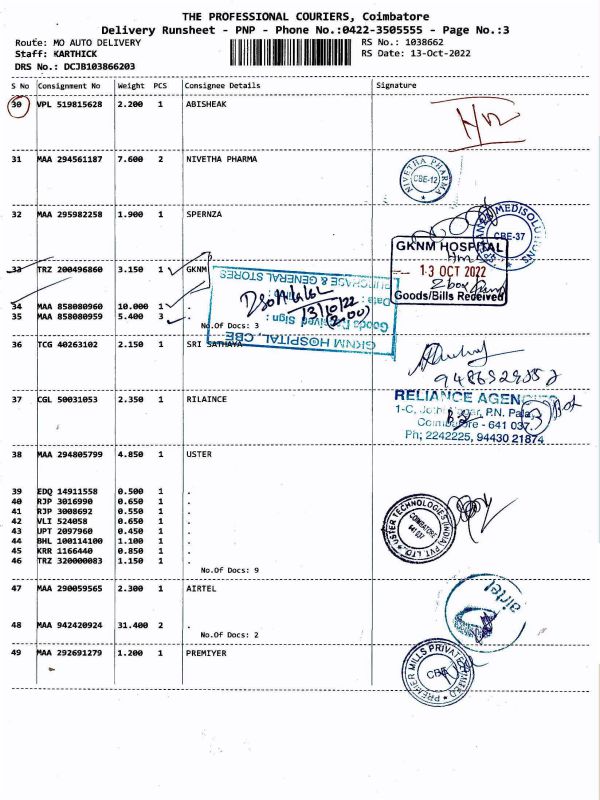 THE PROFESSIONAL COURIERS, Coimbatore
Delivery Runsheet - PNP - Phone No.:0422-3505555 - Page No.:3
Route: MO AUTO DELIVERY RS No.: 1038662
Staff: KARTHICK RS Date: 13-Oct-2022
DRS No.: DCJB103866203
S No Consignment No Weight PCS Consignee Details Signature
30 VPL 519815628 2.200 1 ABISHEAK
31 MAA 294561187 7.600 2 NIVETHA PHARMA
NIVETHA PHARMA
CBE-12
32 MAA 295982258 1.900 1 SPERNZA
MEDISOLUTIONS
CBE-37
33 TRZ 200496860 3.150 1 GKNM
GKNM HOSPITAL
13 OCT 2022
2 box
Goods/Bills Received
PURCHASE & GENERAL STORES
Date :
13/10/22
Goods Received Sign :
GKNM HOSPITAL, CBE
34 MAA 858080960 10.000 1 .
35 MAA 858080959 5.400 3 .
No.Of Docs: 3
36 TCG 40263102 2.150 1 SRI SATHAYA
37 CGL 50031053 2.350 1 RILAINCE
RELIANCE AGENCIES
1-C, P.N. Palayam
Coimbatore - 641 037.
Ph; 2242225, 94430 21874
38 MAA 294805799 4.850 1 USTER
39 EDQ 14911558 0.500 1 .
40 RJP 3016990 0.650 1 .
41 RJP 3008692 0.550 1 .
42 VLI 524058 0.650 1 .
43 UPT 2097960 0.450 1 .
44 BHL 100114100 1.100 1 .
45 KRR 1166440 0.850 1 .
46 TRZ 320000083 1.150 1 .
No.Of Docs: 9
USTER TECHNOLOGIES (INDIA) PVT. LTD.
COIMBATORE
641 037
47 MAA 290059565 2.300 1 AIRTEL
airtel
48 MAA 942420924 31.400 2 .
No.Of Docs: 2
49 MAA 292691279 1.200 1 PREMIYER
PREMIER MILLS PRIVATE LIMITED
CBE